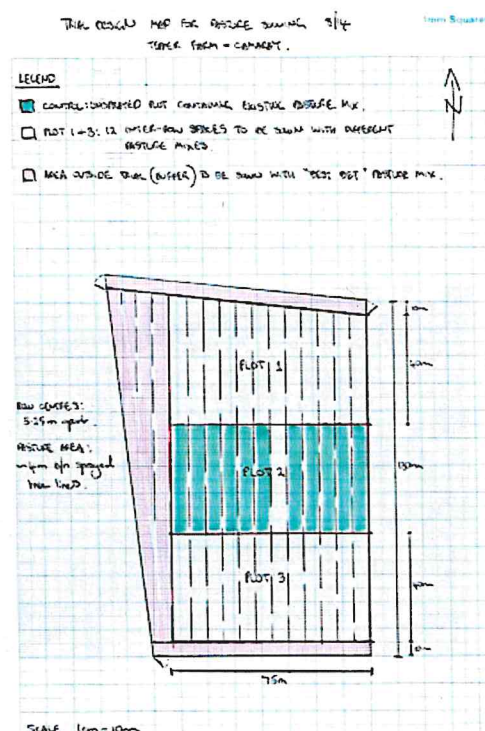 TRIAL DESIGN MAP FOR PASTURE SOWING 3/14
FARM - CANARY.
1mm Square
N
LEGEND
CONTROL: UNSPRAYED PLOT CONTAINING EXISTING PASTURE MIX.
PLOT 1+3: 12 INTER-ROW SPACES TO BE SOWN WITH DIFFERENT
PASTURE MIXES.
AREA OUTSIDE TRIAL (BUFFER) TO BE SOWN WITH "BEST BET" PASTURE MIX.
PLOT 1
PLOT 2
PLOT 3
ROW CENTRES:
5.25m apart.
PASTURE AREA:
b/n sprayed
tree lines.
10m
40m
130m
40m
10m
75m
SCALE 1cm = 10m